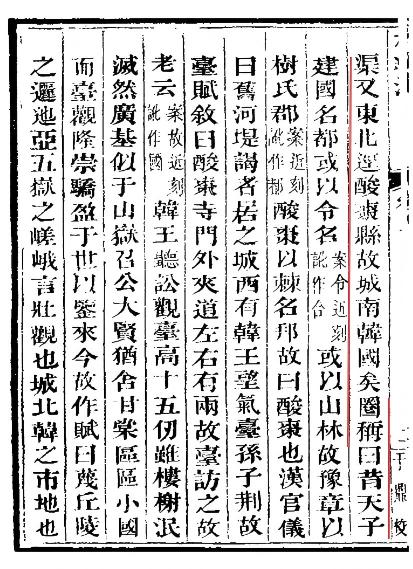 渠又東北逕酸棗縣故城南韓國矣圈稱曰昔天子
建國名都或以令名案令近刻訛作合或以山林故豫章以
樹氏郡案近刻訛作都酸棗以棘名邦故曰酸棗也漢官儀
曰舊河堤謁者居之城西有韓王望氣臺孫子荆故
臺賦敘曰酸棗寺門外夾道左右有兩故臺訪之故
老云案故近刻訛作國韓王聽訟觀臺高十五仞雖樓榭泯
滅然廣基似于山嶽召公大賢猶舍甘棠區區小國
而臺觀隆崇驕盈于世以鑒來今故作賦曰蔑丘陵
之邐迤亞五嶽之嵯峨言壯觀也城北韓之市地也